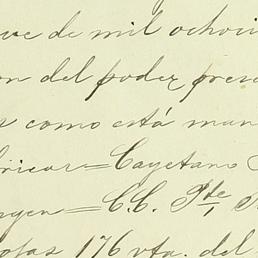 ve de mil ochoci
on del poder prese
s como está man
bricar=Cayetano
rgen=C.C. Pte,
ojas 176 vta. del